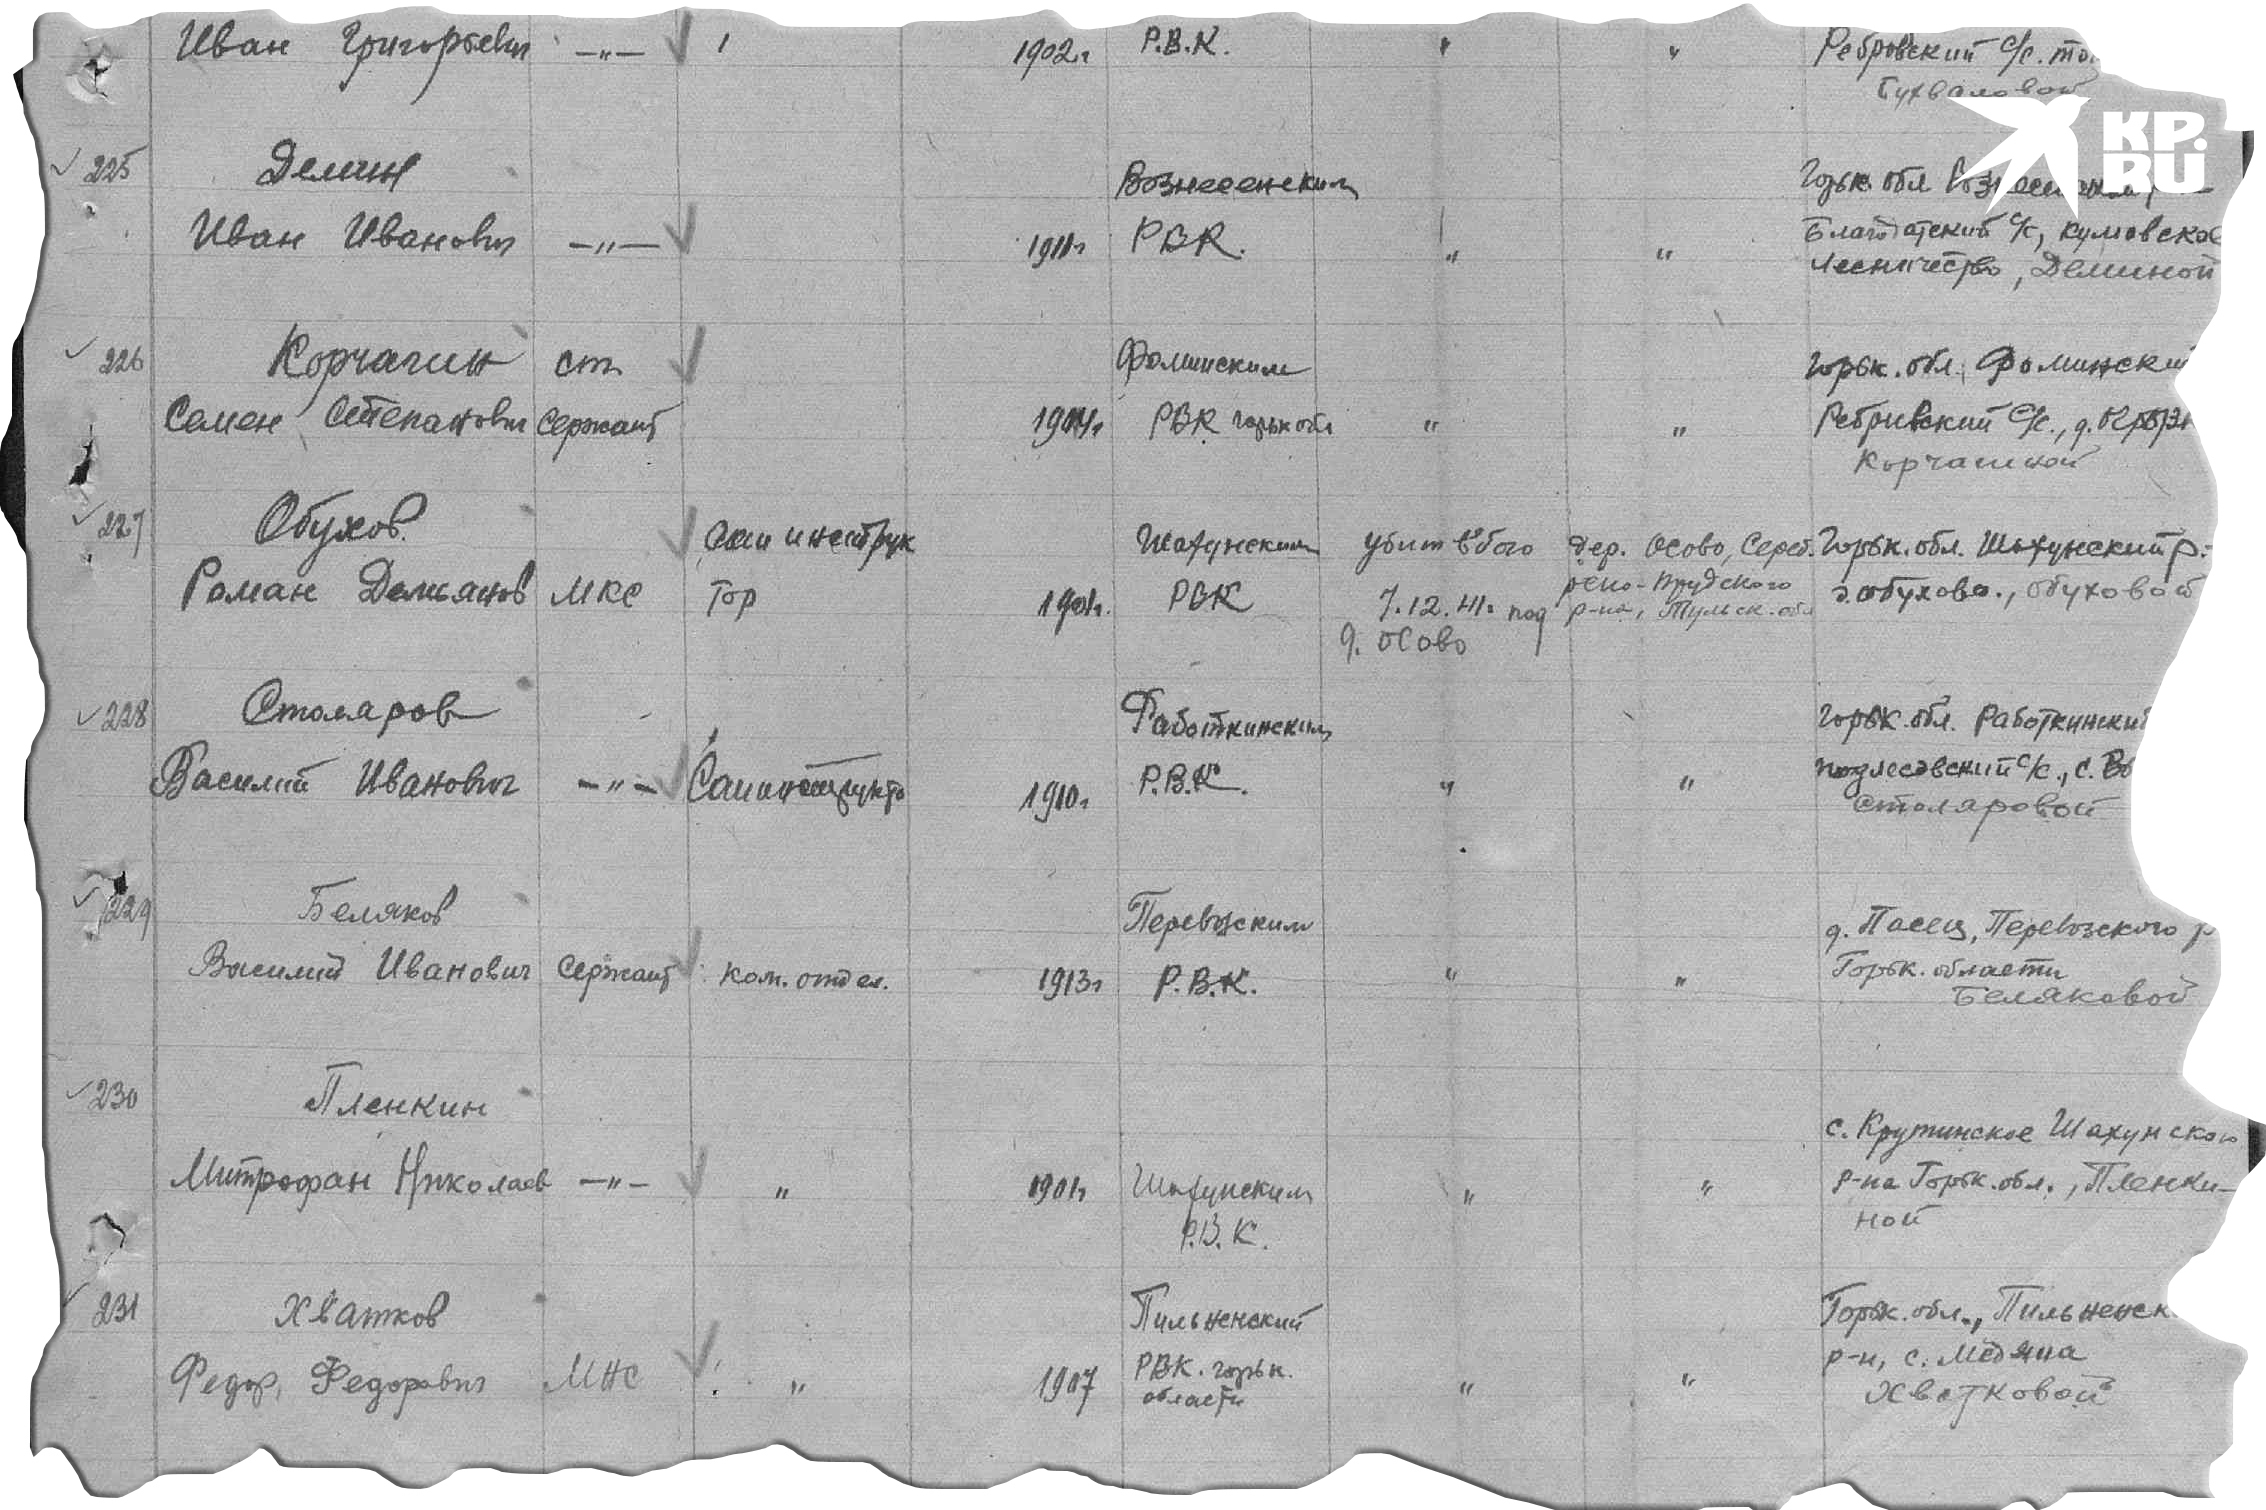 Иван Григорьевич —"— 1902г Р.В.К. " " Ребровский с/с.
Бухваловой
KP.
RU
225 Демин Вознесенским Горьк обл Вознесенский
Иван Иванович —"— 1911г РВК. " " Благодатский с/с, Кумовское
лесничество, Деминой
226 Корчагин ст. Фоминским Горьк. обл. Фоминский
Семен Степанович сержант 1904г РВК Горьк обл " " Ребровский с/с., д.
Корчагиной
227 Обухов. Сан инструк Шахунским убит в бою дер. Осово, Сереб. Горьк. обл. Шахунский р-
Роман Демьянов МКС тор 1901г. РВК 7.12.41г. под ряно-Прудского д. Обухово., Обуховой
д. Осово р-на, Тульск. обл
228 Столяров Работкинским Горьк. обл. Работкинский
Василий Иванович —"— Санинструктор 1910г Р.В.К. " " Подлесовский с/с., с.
Столяровой
229 Беляков Перевозским д. Пасец, Перевозского р
Василий Иванович сержант ком. отдел. 1913г Р.В.К. " " Горьк. области
Беляковой
230 Пленкин с. Крутинское Шахунского
Митрофан Николаев —"— " 1901г Шахунским " " р-на Горьк. обл., Пленки-
Р.В.К. ной
231 Хватков Пильненский Горьк. обл., Пильненск.
Федор Федорович МНС " 1907 РВК. Горьк. " " р-н, с. Медяна
области Хватковой